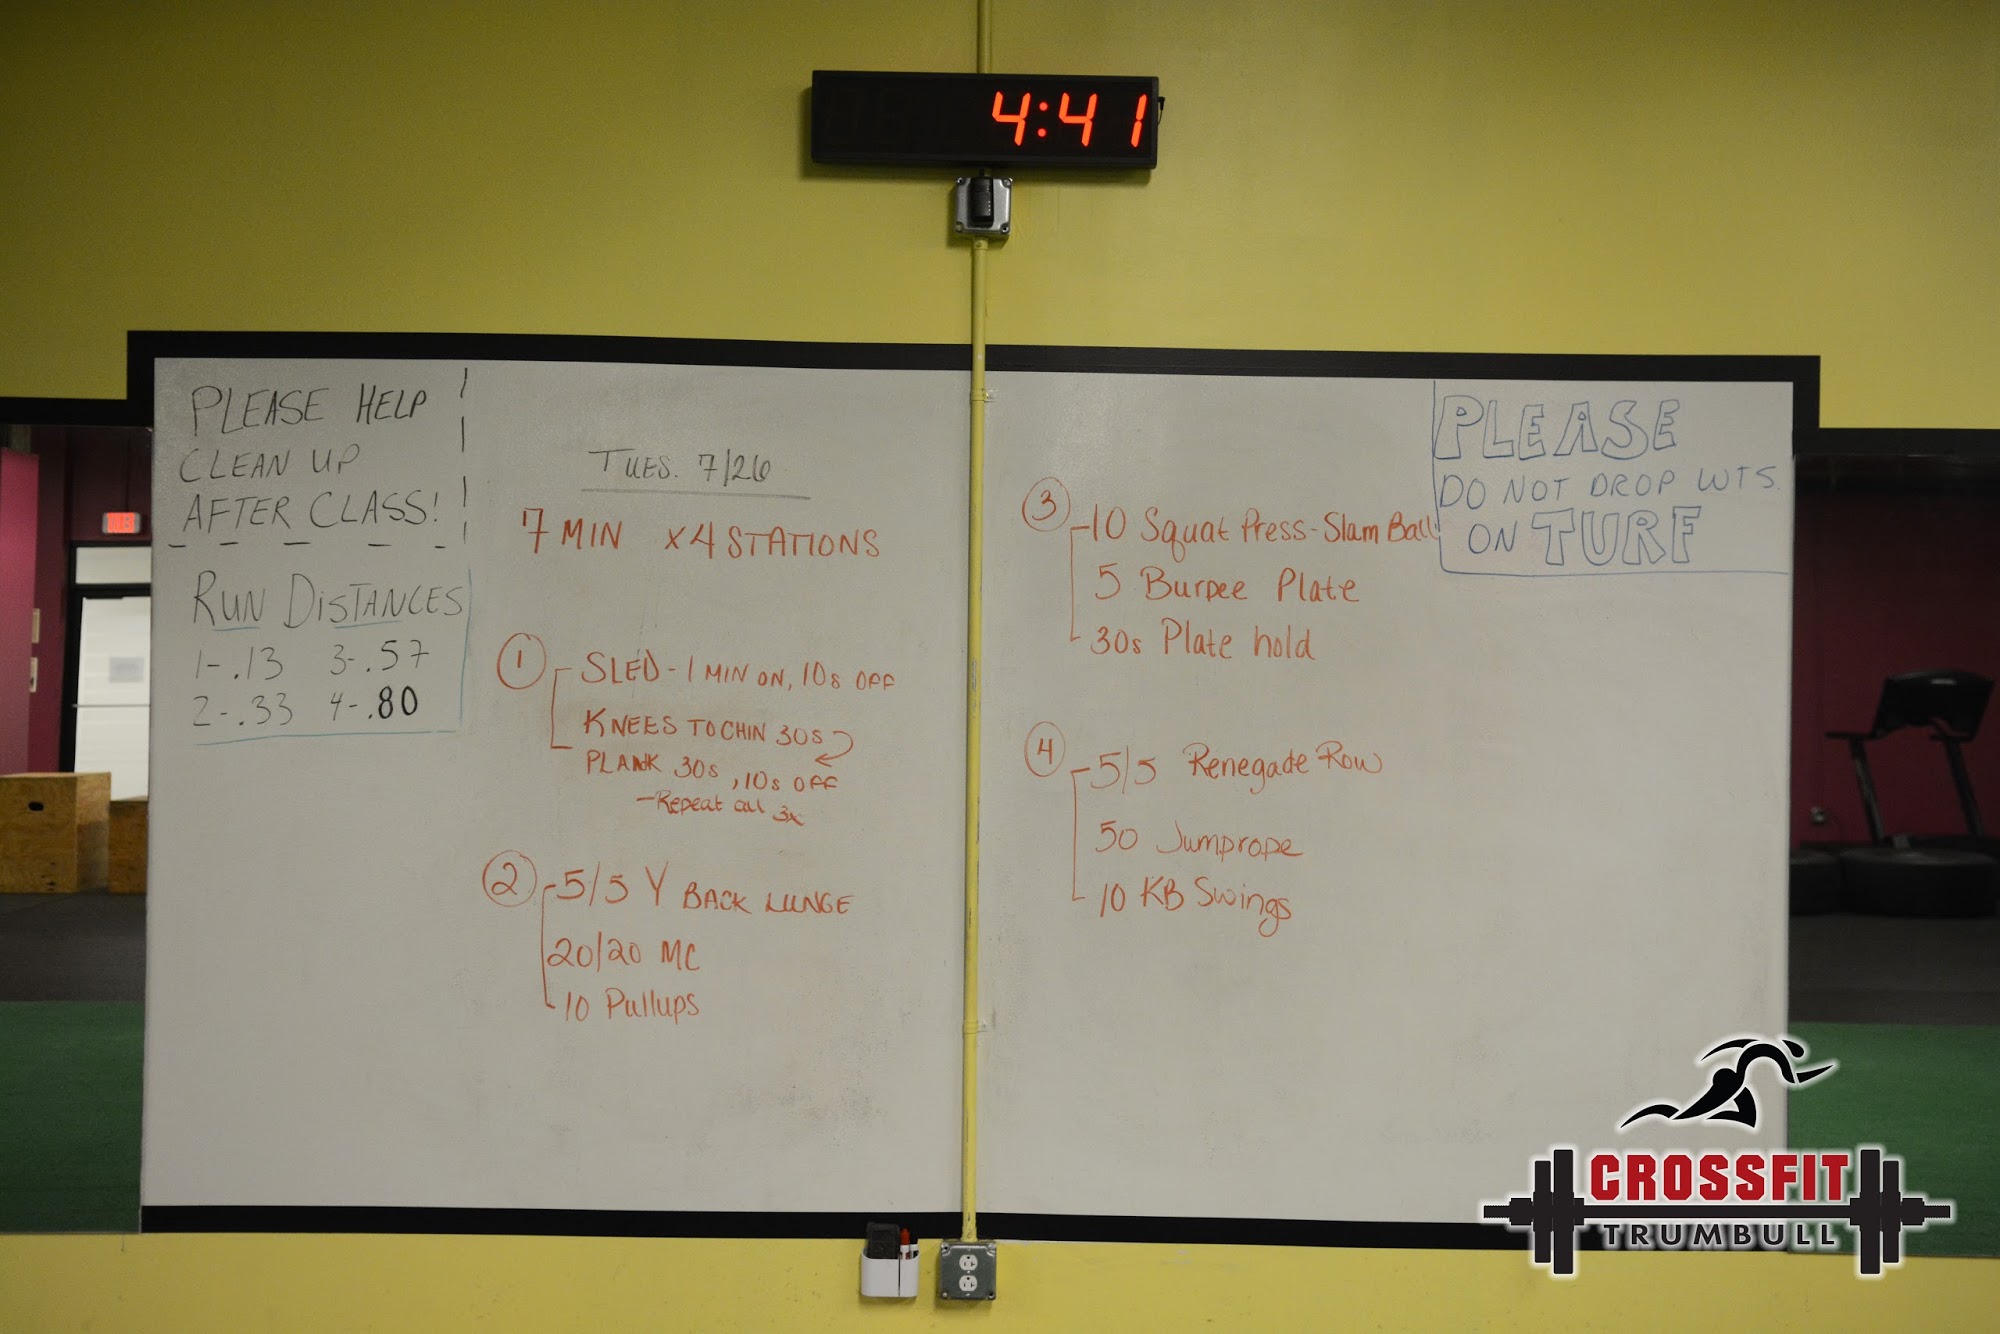 4:41
PLEASE HELP
CLEAN UP
AFTER CLASS!
RUN DISTANCES
1-.13 3-.57
2-.33 4-.80
TUES. 7/26
7 MIN x4 STATIONS
1 SLED - 1 MIN ON, 10s OFF
KNEES TO CHIN 30s
PLANK 30s, 10s OFF
-Repeat all 3x
2 5/5 Y BACK LUNGE
20/20 MC
10 Pullups
3 10 Squat Press-Slam Ball
5 Burpee Plate
30s Plate hold
4 5/5 Renegade Row
50 Jumprope
10 KB Swings
PLEASE
DO NOT DROP WTS.
ON TURF
CROSSFIT
TRUMBULL